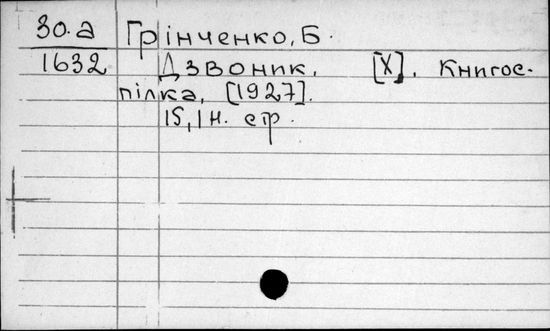 30.а
1632
Грінченко, Б.
Дзвоник. [Х]. Книгос-
пілка, [1927].
15, 1 н. стр.